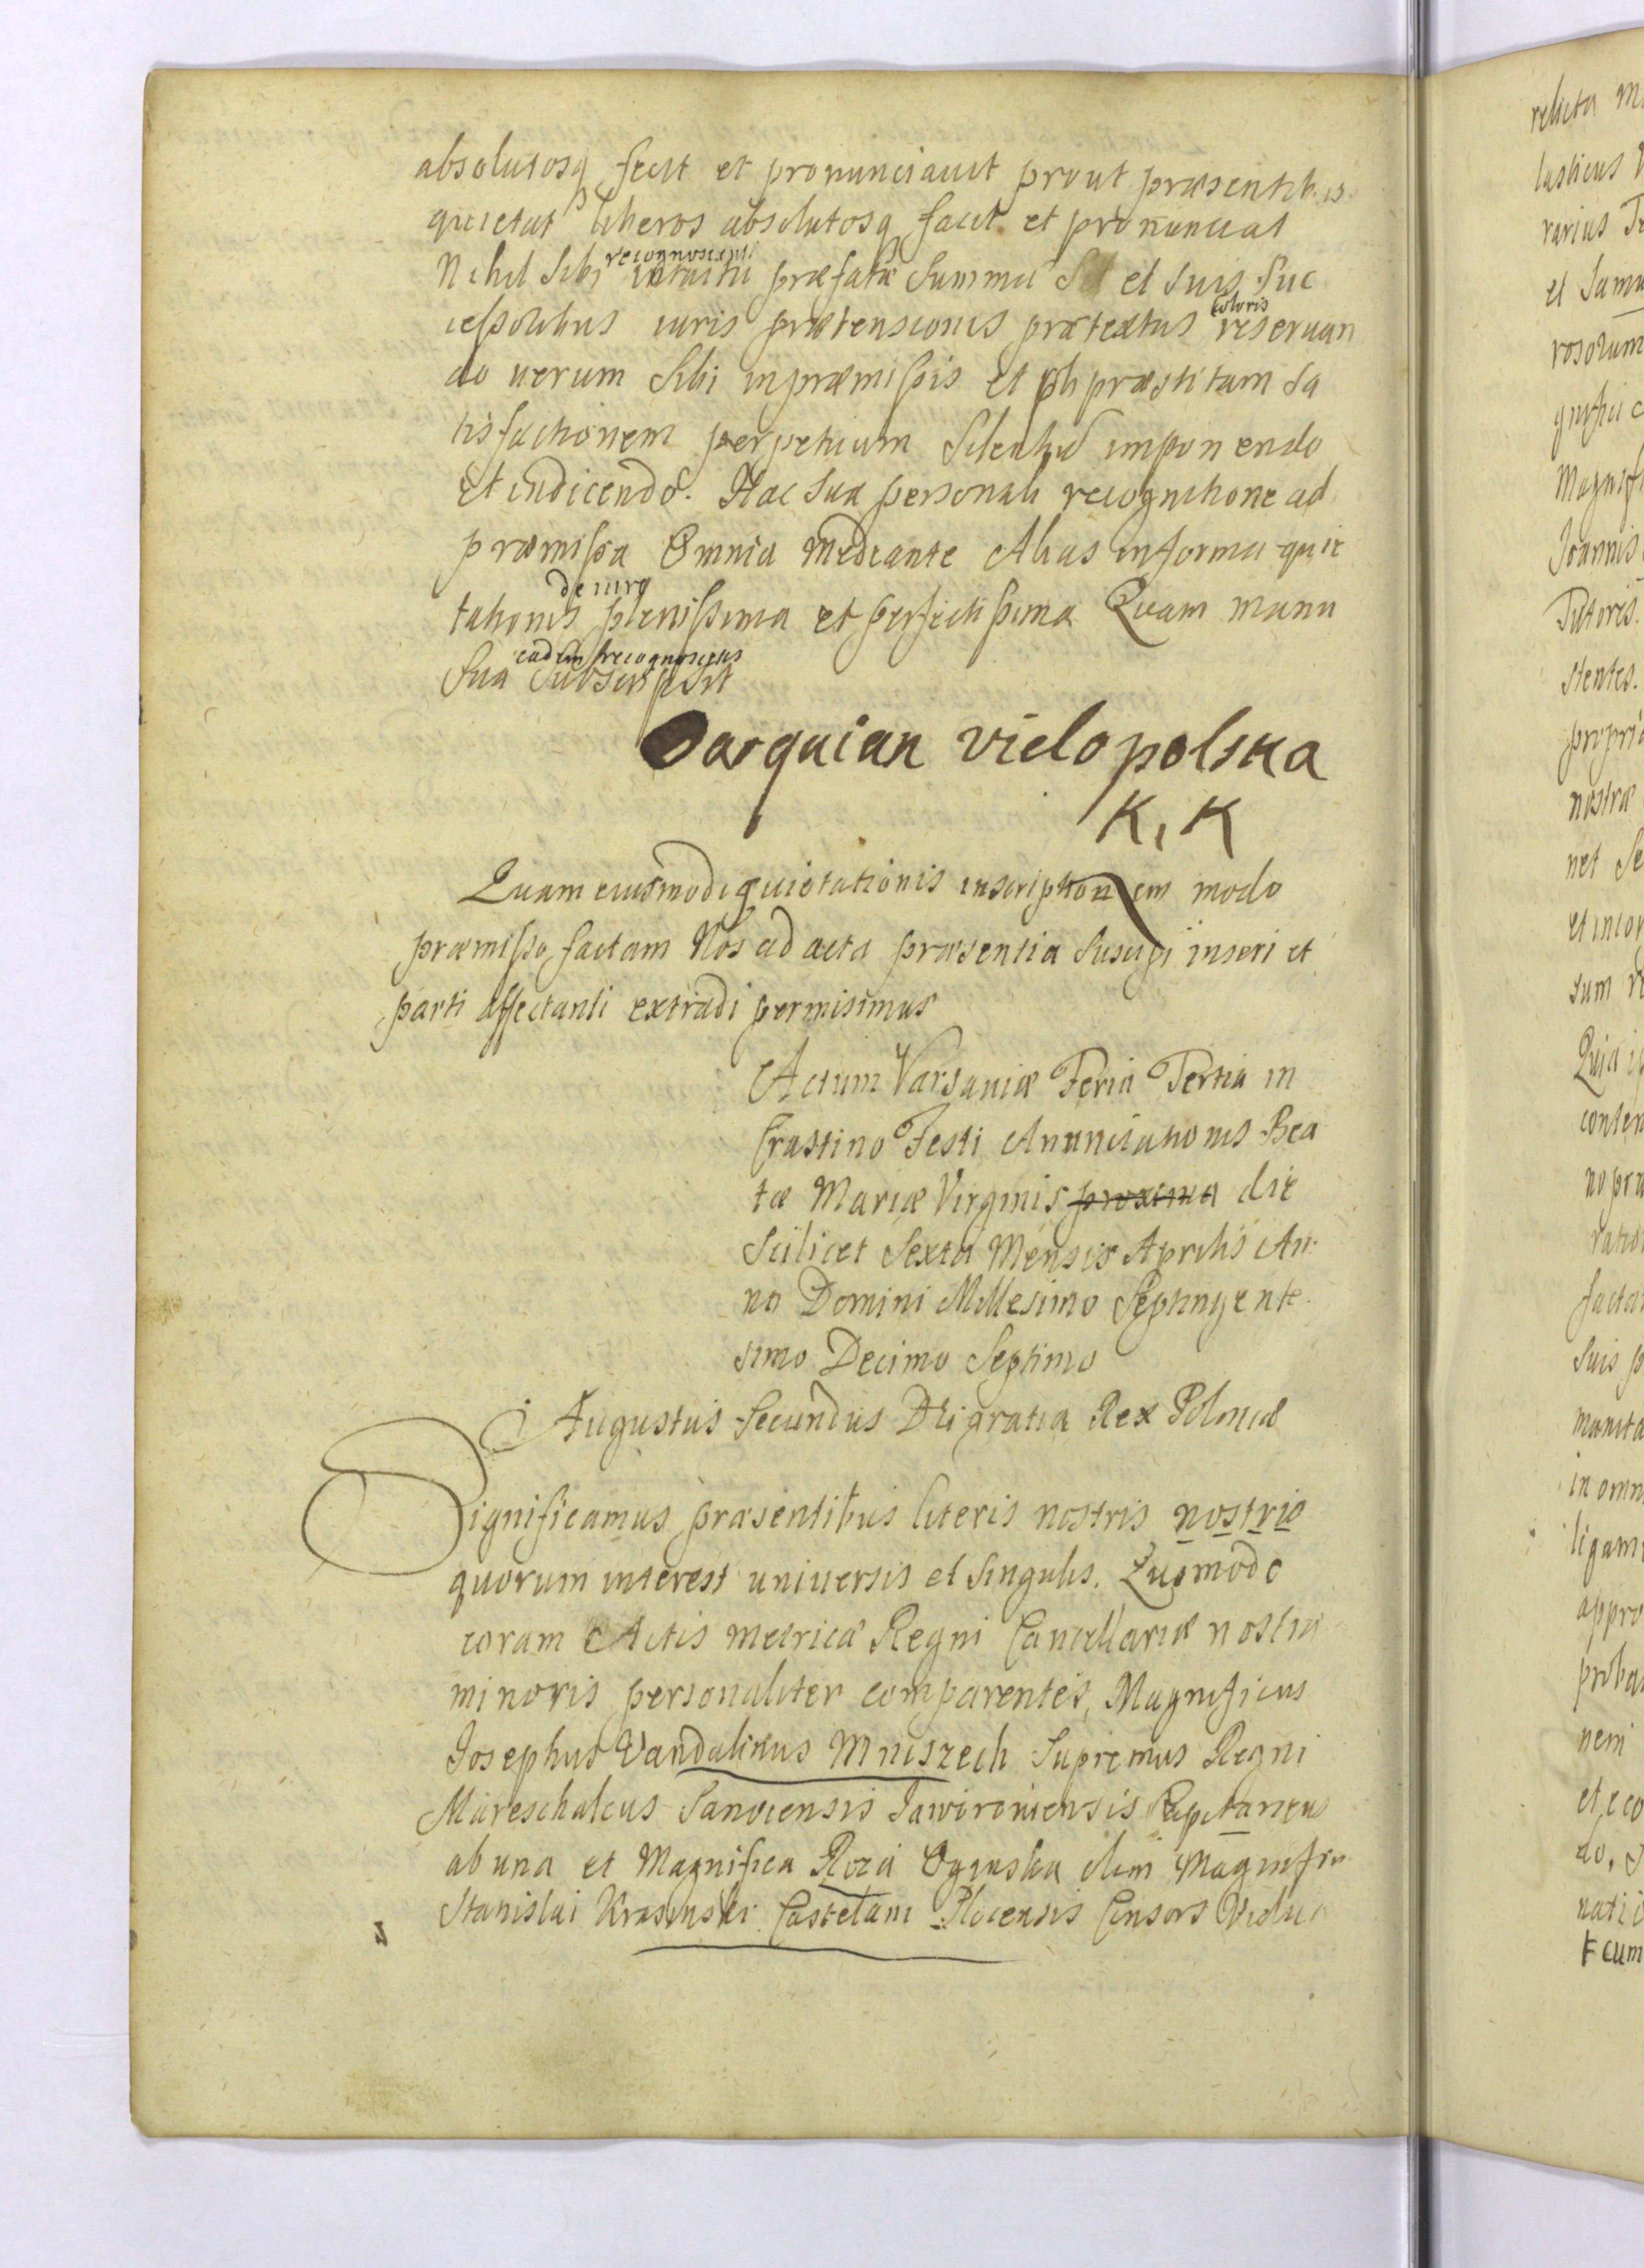 absolutosq fecit et pronunciavit prout præsentibus
quietat liberos absolutosq facit et pronunciat
Nihil Sibi recognoscenti intuitu præfatæ Summæ et Suis Suc
cessoribus iuris prætensionis prætextus coloris reservan
do verum Sibi in præmissis et præstitam Sa
tisfactionem perpetuum Silentiu imponendo
Et indicendo. Hac Sua personali recognitione ad
præmissa Omnia mediante Alias in forma quie
tationis de iure plenissima et perfectissima Quam manu
Sua eadem recognoscens Subscripsit
Darquian vielopolska
K, K
Quam eiusmodi quietationis inscriptionem modo
præmisso factam Nos ad acta præsentia Suscipi inseri et
parti affectanti extradi permisimus
Actum Varsaviæ Feria Tertia in
Crastino Festi Anunciationis Bea
tæ Mariæ Virginis proxima die
Scilicet Sexta Mensis Aprilis An
no Domini Millesimo Septingente
simo Decimo Septimo
Augustus Secundus Dei gratia Rex Poloniæ
Significamus præsentibus literis nostris nostris
quorum interest universis et Singulis. Quomodo
coram Actis metricæ Regni Cancellariæ nostræ
minoris personaliter comparentes, Magnificus
Josephus Vandalinus Mniszech Supremus Regni
Mareschalcus Sanocensis Javoroviensis Capitaneus
ab una et Magnifica Roza Oginska olim Magnifici
Stanislai Krasinski Castelani Plocensis Consors Vidua
relicta
et
Joannis
Tutores.
stentes.
nostræ
Quia